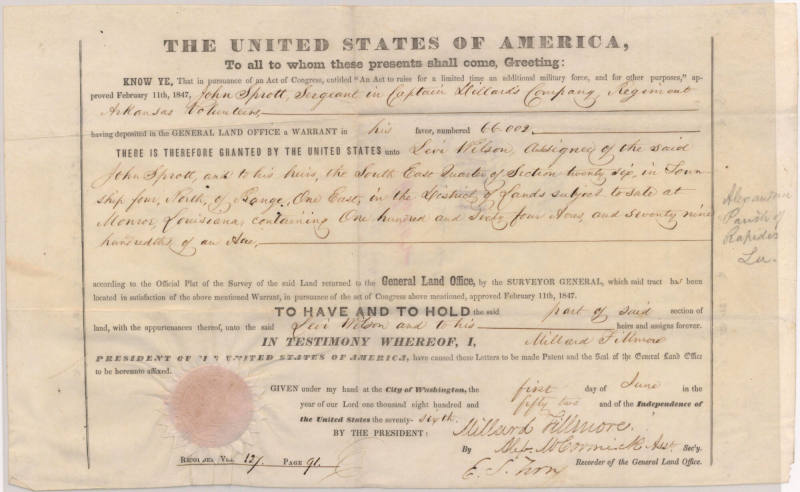 THE UNITED STATES OF AMERICA,
To all to whom these presents shall come, Greeting:
KNOW YE, That in pursuance of an Act of Congress, entitled "An Act to raise for a limited time an additional military force, and for other purposes," ap-
proved February 11th, 1847, John Sprott, Sergeant in Captain Dillards Company, Regiment
Arkansas Volunteers,
having deposited in the GENERAL LAND OFFICE a WARRANT in his favor, numbered 66.002,
THERE IS THEREFORE GRANTED BY THE UNITED STATES unto Levi Wilson, Assignee of the said
John Sprott, and to his heirs, the South East Quarter of Section twenty six, in Town-
ship four, North, of Range, One East, in the District of Lands subject to sale at
Monroe, Louisiana, containing One hundred and Sixty four Acres, and seventy nine
hundredths of an Acre,
according to the Official Plat of the Survey of the said Land returned to the General Land Office, by the SURVEYOR GENERAL, which said tract has been
located in satisfaction of the above mentioned Warrant, in pursuance of the act of Congress above mentioned, approved February 11th, 1847.
TO HAVE AND TO HOLD the said part of said section of
land, with the appurtenances thereof, unto the said Levi Wilson and to his heirs and assigns forever.
IN TESTIMONY WHEREOF, I, Millard Fillmore
PRESIDENT OF THE UNITED STATES OF AMERICA, have caused these Letters to be made Patent and the Seal of the General Land Office
to be hereunto affixed.
GIVEN under my hand at the City of Washington, the first day of June in the
year of our Lord one thousand eight hundred and fifty two and of the Independence of
the United States the seventy-sixth.
BY THE PRESIDENT: Millard Fillmore.
By Alex. McCormick Asst. Sec'y.
E. S. Recorder of the General Land Office.
RECORDED, VOL. 121 PAGE 91.
Alexandria
Parish of
Rapides
La.